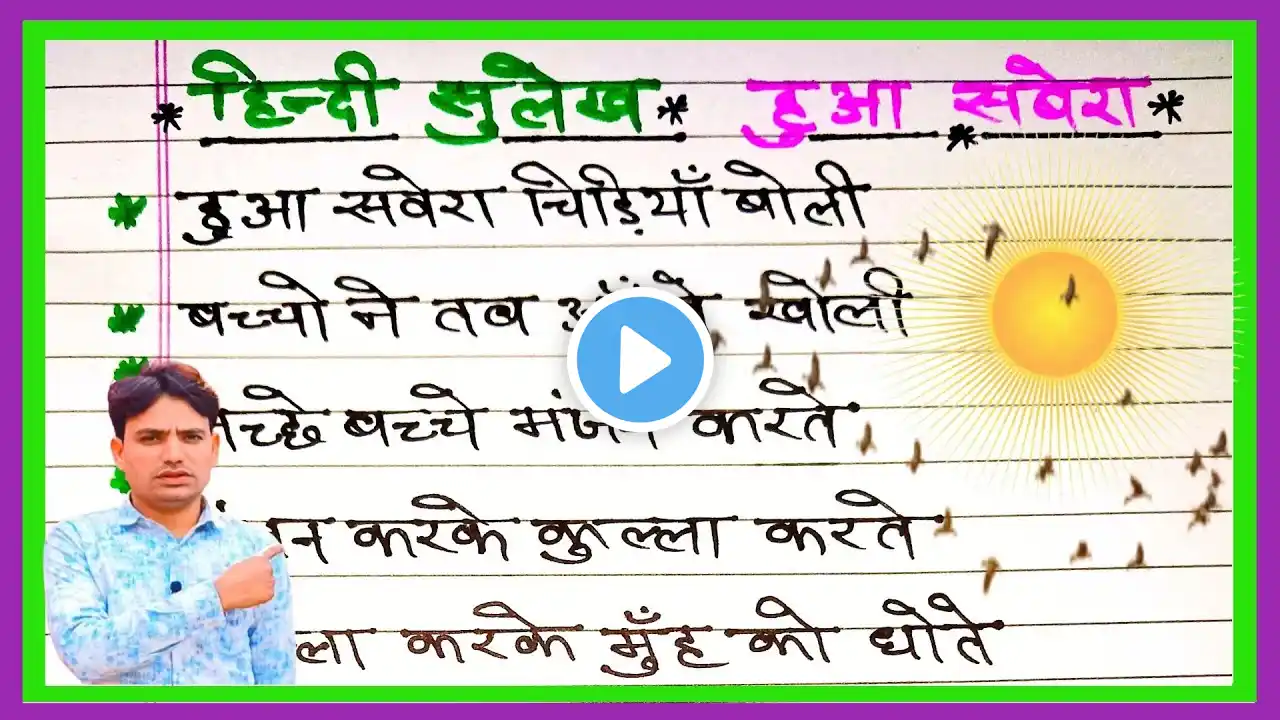 * हिन्दी सुलेख * हुआ सवेरा *
* हुआ सवेरा चिड़ियाँ बोली
* बच्चो ने तब खोली
बच्चे मंजन करते
करके कुल्ला करते
करके मुँह को धोते